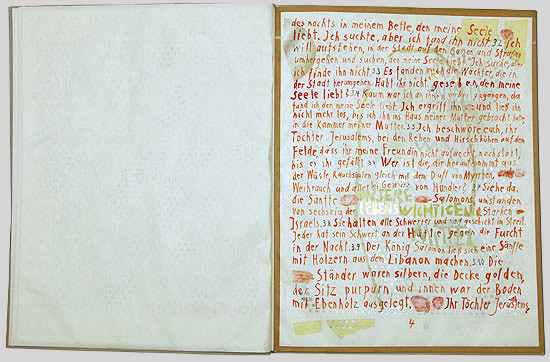 des nachts in meinem Bette, den meine Seele
liebt. Ich suchte, aber ich fand ihn nicht. 3.2 Ich
will aufstehen, in der Stadt auf den Gassen und Straßen
umhergehen und suchen, den meine Seele liebt. Ich suchte, aber
ich finde ihn nicht. 3.3 Es fanden mich die Wächter, die in
der Stadt herumgehen. Habt ihr nicht gesehen, den meine
Seele liebt? 3.4 Kaum war ich an ihnen vorbei gegangen, da
fand ich den meine Seele liebt. Ich ergriff ihn und ließ ihn
nicht mehr los, bis ich ihn ins Haus meiner Mutter gebracht hatte,
in die Kammer meiner Mutter. 3.5 Ich beschwöre euch, ihr
Töchter Jerusalems, bei den Rehen und Hirschkühen auf dem
Felde, dass ihr meine Freundin nicht aufweckt, noch stört,
bis es ihr gefällt. 3.6 Wer ist die, die heraufkommt aus
der Wüste, Rauchsäulen gleich mit dem Duft von Myrrhen,
Weihrauch und allem Gewürz von Händler? 3.7 Siehe da,
die Sänfte Salomons, umstanden
UNSERE
von sechszig der Starken
LEBENSWICHTIGEN
Israels. 3.8 Sie halten alle Schwerter und sind geschickt im Streit.
Jeder hat sein Schwert an der Hüfte gegen die Furcht
in der Nacht. 3.9 Der König Salomon ließ sich eine Sänfte
mit Hölzern aus dem Libanon machen. 3.10 Die
Ständer waren silbern, die Decke golden,
der Sitz purpurn, und innen war der Boden
mit Ebenholz ausgelegt. Ihr Töchter Jerusalems,
4